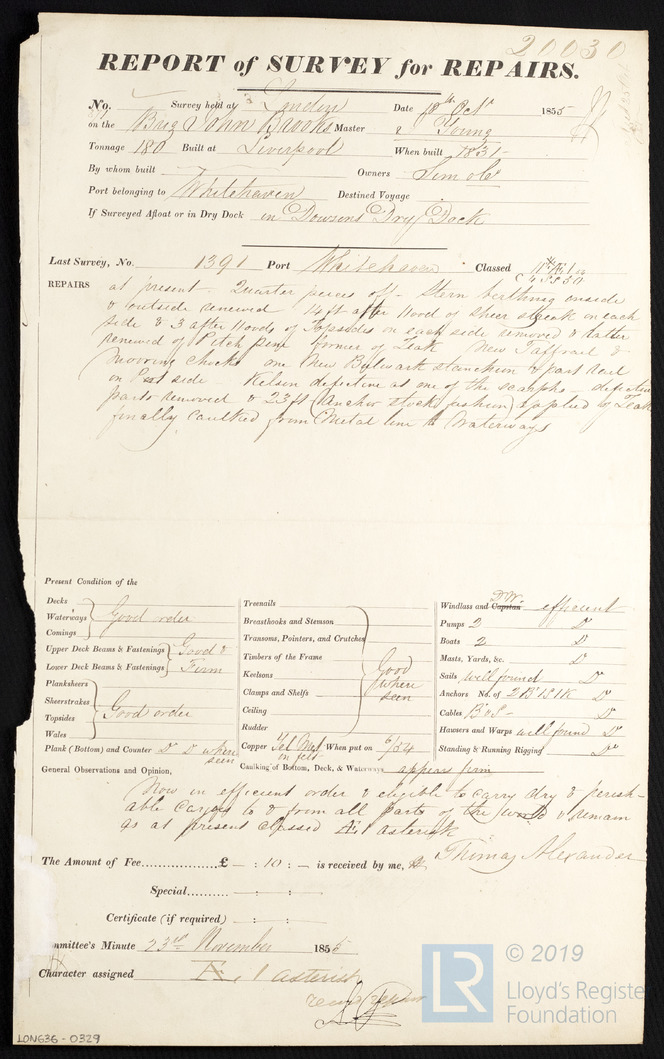 20030
REPORT of SURVEY for REPAIRS.
No. Survey held at London Date 18th Octr 1855
on the Brig John Brooks Master Young
Tonnage 180 Built at Liverpool When built 1831
By whom built Owners
Port belonging to Whitehaven Destined Voyage
If Surveyed Afloat or in Dry Dock in Dowsons Dry Dock
Last Survey, No. 1391 Port Whitehaven Classed
REPAIRS at present. Quarter pieces off - Stern birthing inside
& outside renewed 14 ft after Hood of sheer streak on each
side & 3 after Hoods of Topsides on each side removed & latter
renewed of Pitch pine former of Teak New Taffrail &
mooring chocks one New Bulwark stanchion & part rail
on Port side - Kelson defective at one of the scarphs - defective
parts removed & 23 ft (Anchor stock fashion) applied of Teak
finally caulked from Metal line to Waterways
Present Condition of the
Decks
Waterways Good order
Comings
Upper Deck Beams & Fastenings Good &
Lower Deck Beams & Fastenings Firm
Planksheers
Sheerstrakes
Topsides Good order
Wales
Plank (Bottom) and Counter Do Do when seen
Treenails
Breasthooks and Stemson
Transoms, Pointers, and Crutches
Timbers of the Frame
Keelsons Good when seen
Clamps and Shelfs
Ceiling
Rudder
Copper Yel Met on felt When put on 6/54
Caulking of Bottom, Deck, & Waterways appears firm
Windlass and Capstan efficient
Pumps 2 Do
Boats 2 Do
Masts, Yards, &c. Do
Sails well found Do
Anchors No. of 2B 1S 1K Do
Cables Do
Hawsers and Warps well found Do
Standing & Running Rigging Do
General Observations and Opinion,
Now in efficient order & eligible to carry dry & perish-
able Cargos to & from all parts of the world & remain
as at present classed Æ 1 asterisk
The Amount of Fee £ — : 10 : — is received by me, Thomas Alexander
Special
Certificate (if required)
mmittee's Minute 23rd November 1855
Character assigned Æ 1 asterisk
LON636 - 0329
© 2019
LR
Lloyd's Registe
Foundation